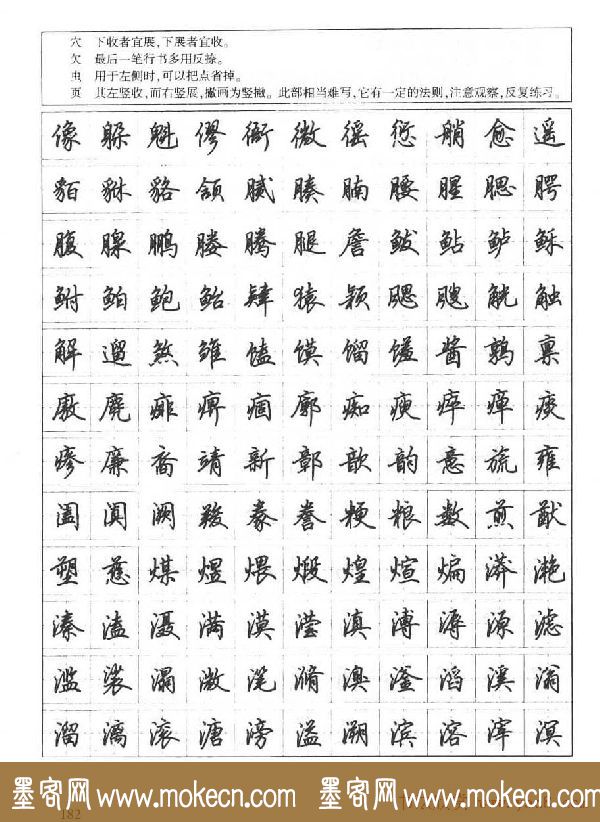 穴 下收者宜展,下展者宜收。
欠 最后一笔行书多用反捺。
虫 用于左侧时,可以把点省掉。
页 其左竖收,而右竖展,撇画为竖撇。此部相当难写,它有一定的法则,注意观察,反复练习。
像 躲 魁 僇 衙 微 徭 愆 艄 愈 遥
貊 貅 貉 颔 腻 腠 腩 腰 腥 腮 腭
腹 腺 鹏 塍 腾 腿 詹 鲅 鲇 鲈 稣
鲋 鲌 鲍 鲐 肄 猿 颖 飔 飕 觥 触
解 遛 煞 雏 馌 馍 馏 馐 酱 鹑 禀
廒 麂 痱 痹 痼 廓 痴 痿 瘁 瘅 痰
瘆 廉 裔 靖 新 鄣 歆 韵 意 旒 雍
阖 阗 阙 羧 豢 誊 粳 粮 数 煎 猷
塑 慈 煤 煜 煨 煅 煌 煊 煸 漭 滟
溱 溘 滠 满 漠 滢 滇 溥 溽 源 滤
滥 裟 溻 溦 滗 滫 溴 滏 滔 溪 滃
溜 漓 滚 溏 滂 溢 溯 滨 溶 滓 溟
182
墨客网 www.mokecn.com 墨客网 www.mokecn.com